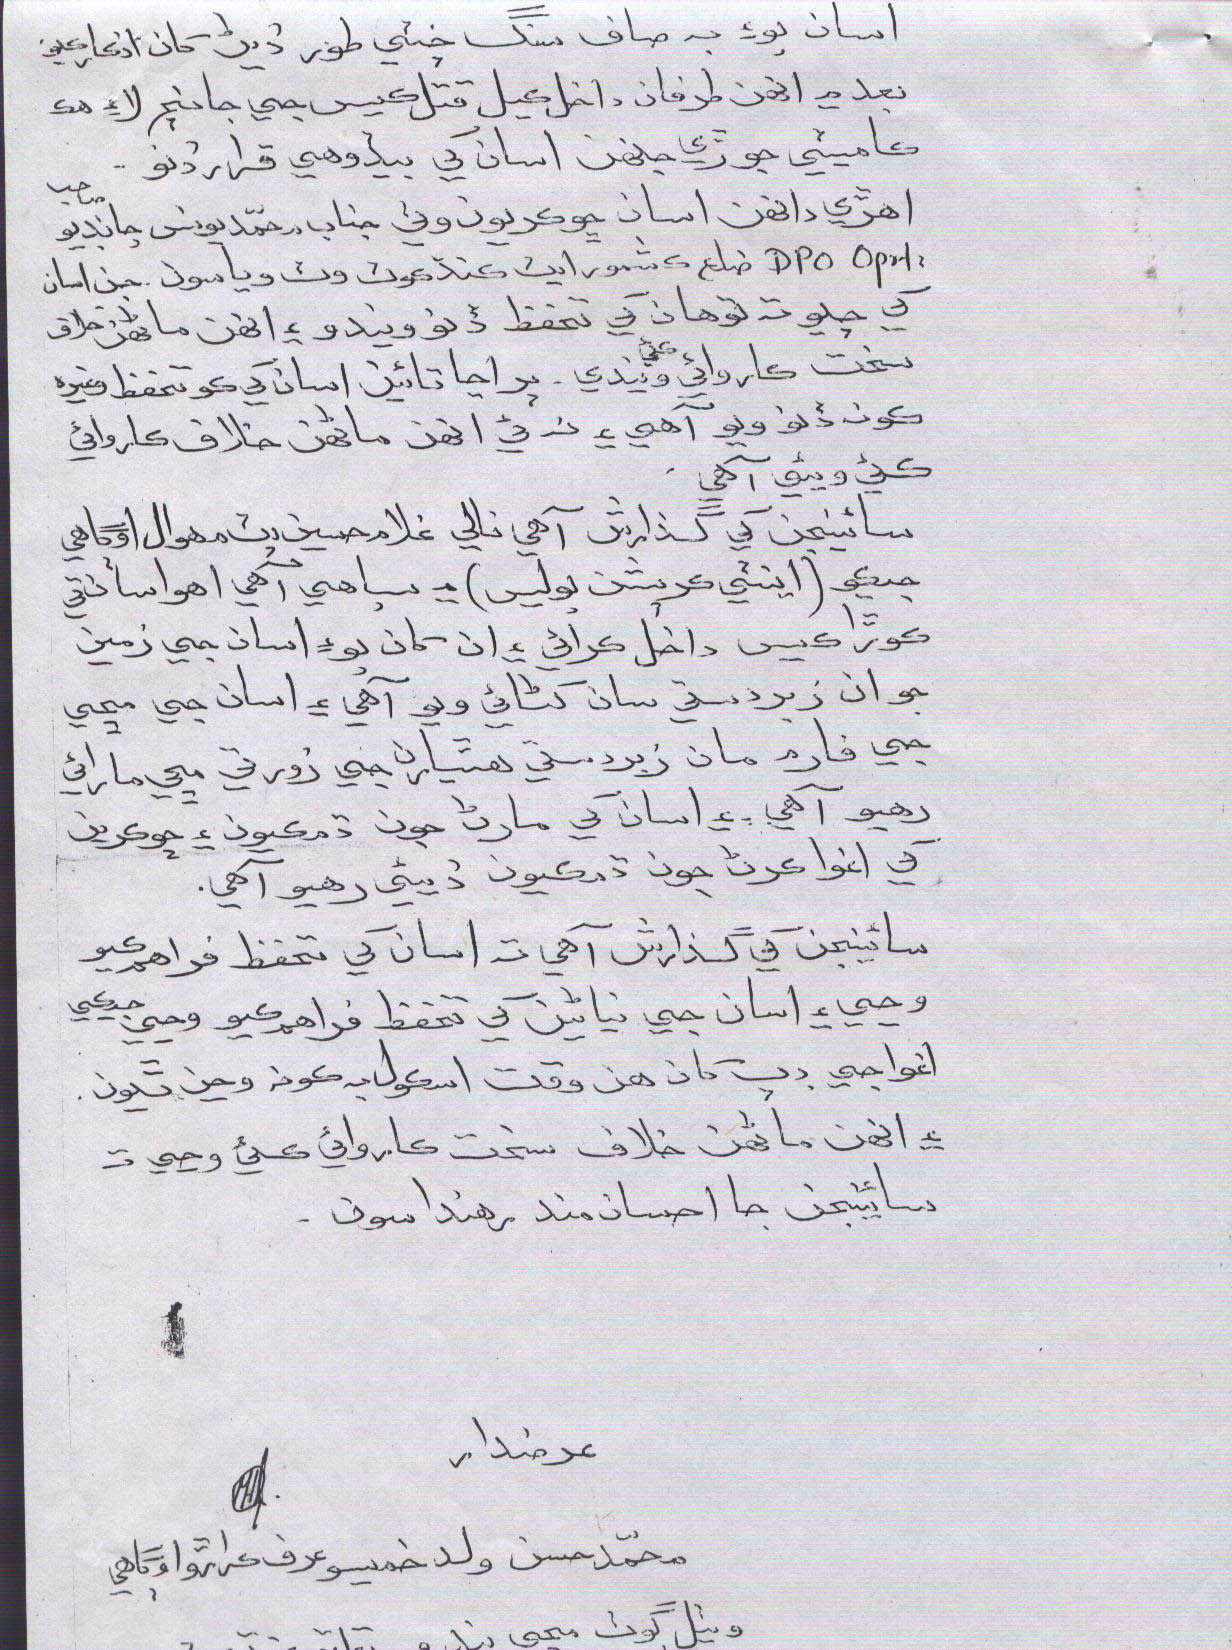 اسان پوءِ به صاف سنگ چٽي طور ڏيڻ کان انڪار ڪيو
بعد ۾ انهن طرفان داخل ڪيل قتل ڪيس جي جانچ لاءِ هڪ
ڪاميٽي جوڙي جنهن اسان کي بيڏوهي قرار ڏنو ..
اهڙي دانهن اسان ڇوڪريون وٺي جناب محمّد يونس چانڊيو صاحب
DPO Oprt: ضلع ڪشمور ايٽ ڪنڌڪوٽ وٽ وياسون . جن اسان
کي چيو ته توهان کي تحفظ ڏنو ويندو ۽ انهن ماڻهن خلاف
سخت ڪاروائي ڪئي ويندي . پر اڃا تائين اسان کي ڪو تحفظ وغيره
ڪونه ڏنو ويو آهي ۽ نه ئي انهن ماڻهن خلاف ڪاروائي
ڪئي ويئي آهي .
سائينجن کي گذارش آهي نالي غلام حسين پٽ مهوال اوگاهي
جيڪو (اينٽي ڪرپشن پوليس) ۾ سپاهي آهي اهو اسان تي
ڪوڙا ڪيس داخل ڪرائي ۽ ان کان پوءِ اسان جي زمين
جو ان زبردستي سان کڻائي ويو آهي ۽ اسان جي مڇي
جي فارم مان زبردستي هٿيارن جي زور تي مڇي مارائي
رهيو آهي . ۽ اسان کي مارڻ جون ڌمڪيون ۽ ڇوڪرين
کي اغوا ڪرڻ جون ڌمڪيون ڏيئي رهيو آهي .
سائينجن کي گذارش آهي ته اسان کي تحفظ فراهم ڪيو
وڃي ۽ اسان جي نياڻين کي تحفظ فراهم ڪيو وڃي جيڪي
اغوا جي ڊپ کان هن وقت اسڪول به ڪونه وڃن ٿيون .
۽ انهن ماڻهن خلاف سخت ڪاروائي ڪئي وڃي ته
سائينجن جا احسان مند رهندا سون .
عرضدار
محمّد حسن ولد خميسو عرف ڪراڙو اوگاهي
ويٺل ڳوٺ مڇي